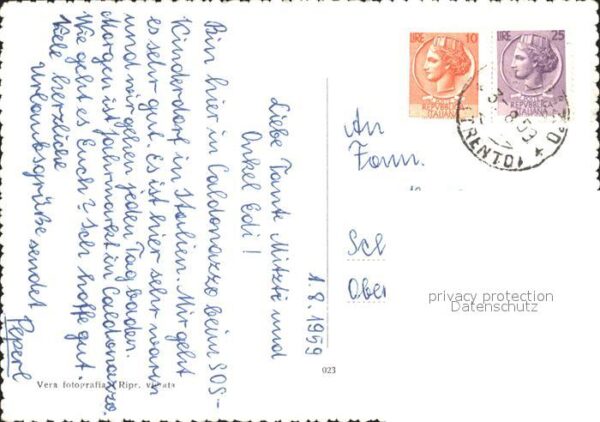 1.8.1959
Liebe Tante Mitzi und
Onkel Edi!
Bin hier in Caldonazzo beim SOS-
Kinderdorf in Italien. Mir geht
es sehr gut. Es ist hier sehr warm
und wir gehen jeden Tag baden.
Morgen ist Jahrmarkt in Caldonazzo.
Wie geht es Euch? Ich hoffe gut.
Viele herzliche
Urlaubsgrüße sendet
Peperl
Vera fotografia Ripr. vietata
023
LIRE 10
REPUBBLICA
ITALIANA
LIRE 25
REPUBBLICA
ITALIANA
TRENTO
An
Fam.
Sch
Ober
privacy protection
Datenschutz